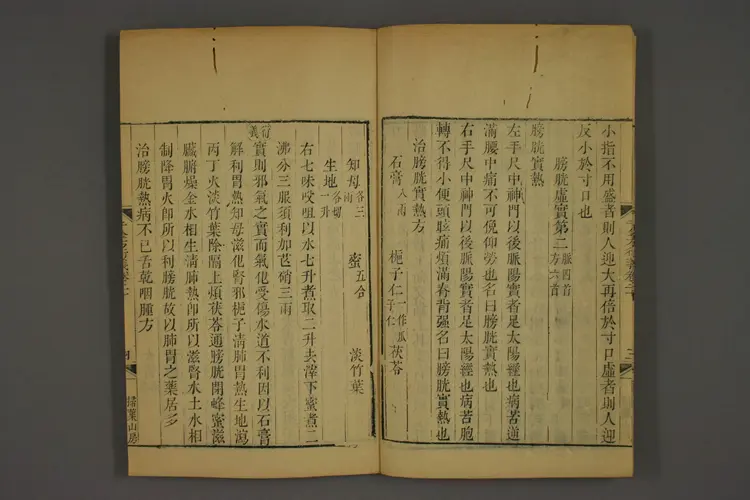 小指不用盛者則人迎大再倍於寸口虛者則人迎
反小於寸口也
膀胱虛實第二 脈四首 方六首
膀胱實熱
左手尺中神門以後脈陽實者足太陽經也病苦逆
滿腰中痛不可俛仰勞也名曰膀胱實熱也
右手尺中神門以後脈陽實者足太陽經也病苦胞
轉不得小便頭眩痛煩滿脊背强名曰膀胱實熱也
治膀胱實熱方
石膏八兩 梔子仁一作瓜子仁 茯苓
知母各三兩 蜜五合 淡竹葉
生地各切一升
右七味㕮咀以水七升煮取二升去滓下蜜煮二
沸分三服須利加芒硝三兩
衍義 實則邪氣之實而氣化受傷水道不利因以石膏
解利胃熱知母滋化腎邪梔子清肺胃熱生地瀉
丙丁火淡竹葉除膈上煩茯苓通膀胱閉蜂蜜滋
臟腑燥金水相生清肺熱即所以滋腎水土水相
制降胃火即所以利膀胱故以肺胃之藥居多
治膀胱熱病不已舌乾咽腫方
掃葉山房